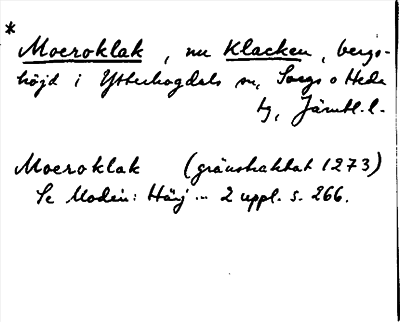 *
Moeroklak, nu Klacken, bergs-
höjd i Ytterhogdals sn, Svegs o Hede
tg, Jämtl. l.
Moeroklak (gränstraktat 1273)
Se Modin: Härj... 2 uppl. s. 266.